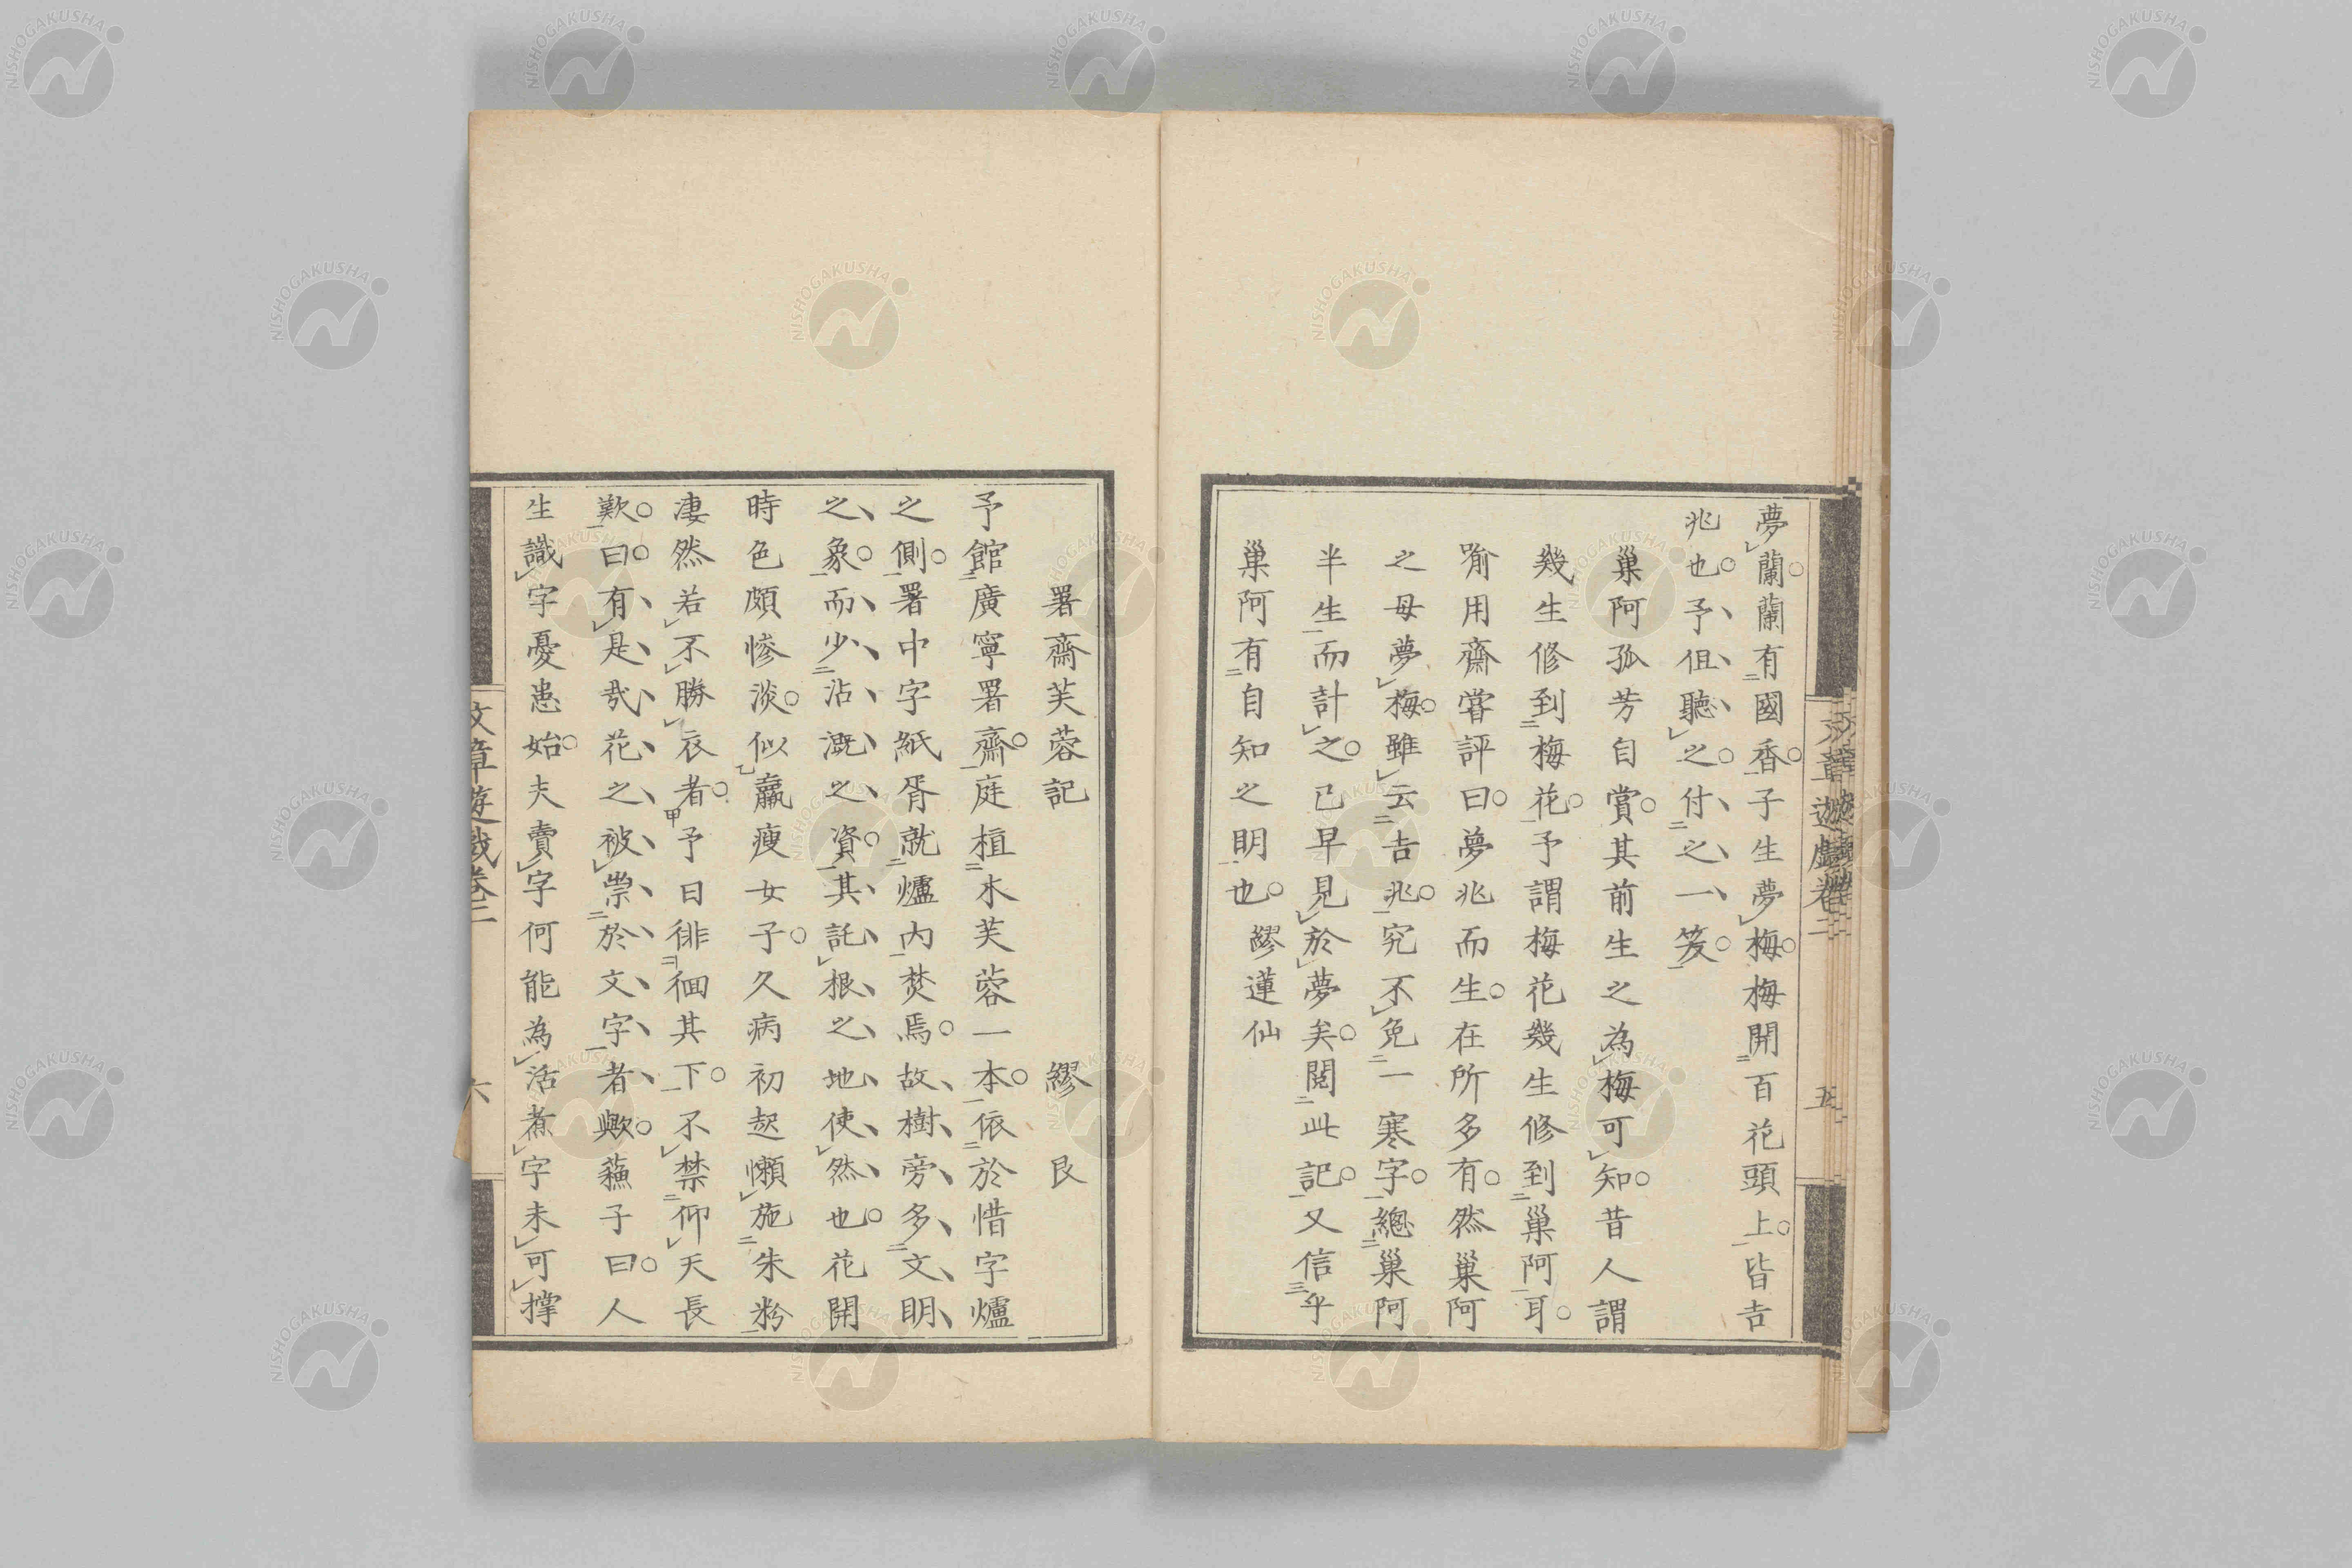 夢蘭蘭有國香子生夢梅梅開百花頭上皆吉
兆也予但聽之付之一笑
巢阿孤芳自賞其前生之為梅可知昔人謂
幾生修到梅花予謂梅花幾生修到巢阿耳
喻用齋嘗評曰夢兆而生在所多有然巢阿
之母夢梅雖云吉兆究不免一寒字總巢阿
半生而計之已早見於夢矣閱此記又信乎
巢阿有自知之明也 繆蓮仙
文章遊戲卷二 五
署齋芙蓉記 繆艮
予館廣寧署齋庭植木芙蓉一本依於惜字爐
之側署中字紙胥就爐內焚焉故樹旁多文明
之象而少沾溉之資其託根之地使然也花開
時色頗慘淡似羸瘦女子久病初起懶施朱粉
淒然若不勝衣者予日徘徊其下不禁仰天長
歎曰有是哉花之被祟於文字者歟蘓子曰人
生識字憂患始夫賣字何能為活煮字未可撑
文章遊戲卷二 六
NISHOGAKUSHA